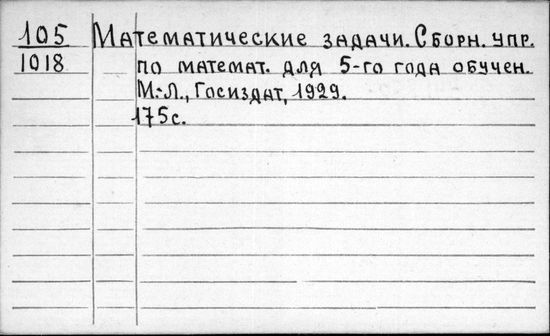 105 Математические задачи. Сборн. упр.
1018 по математ. для 5-го года обучен.
М.-Л., Госиздат, 1929.
175с.